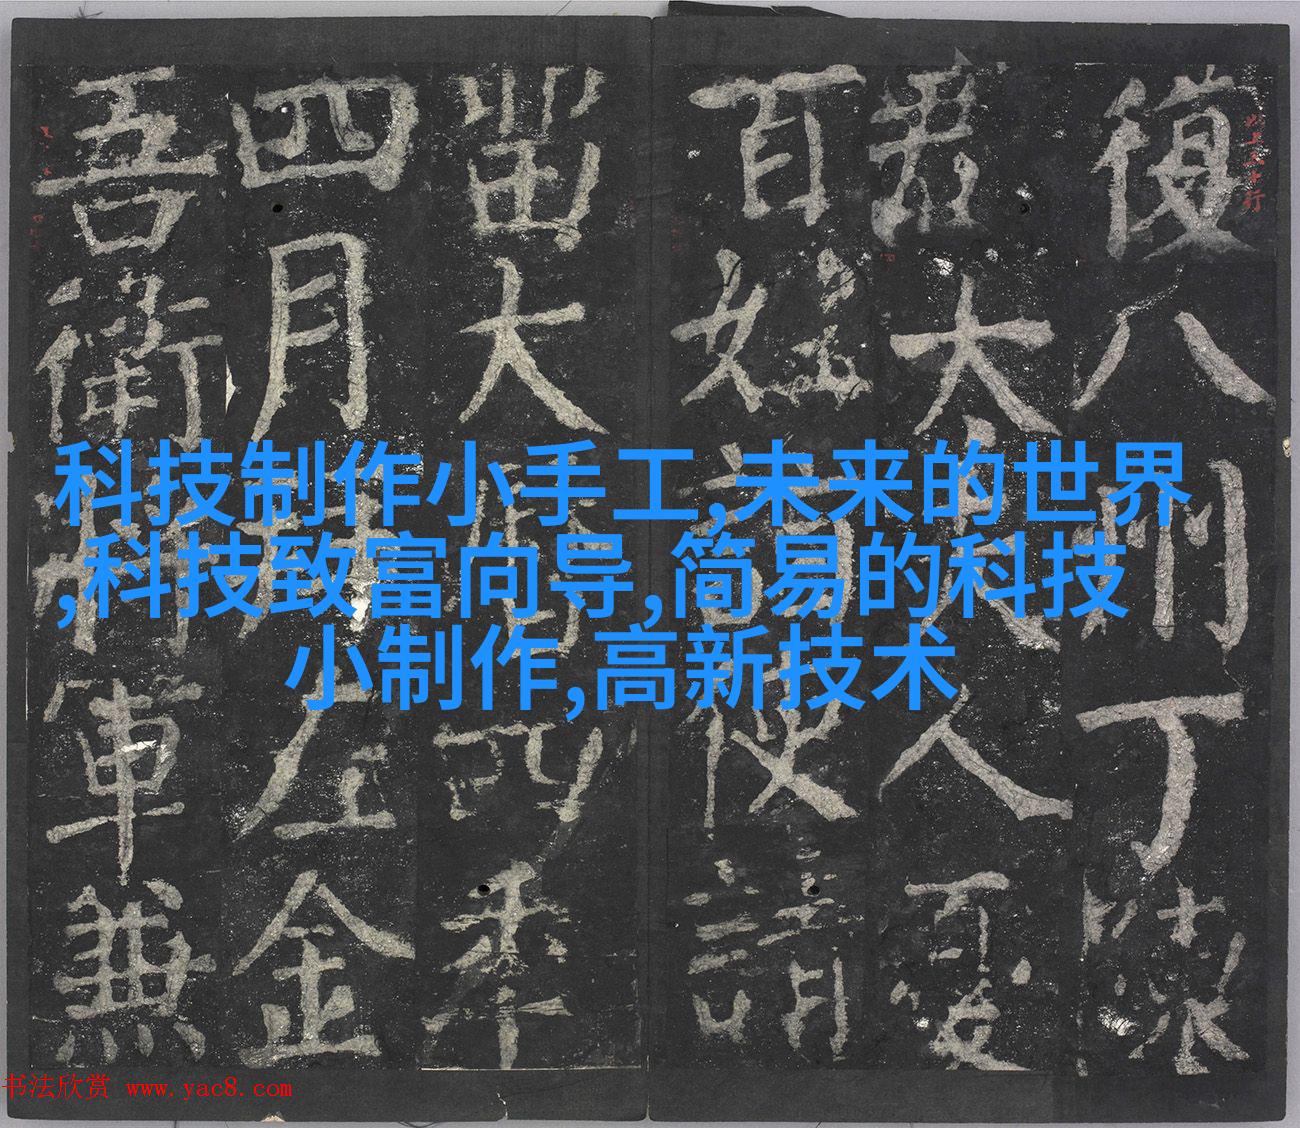 科技制作小手工,未来的世界
,科技致富向导,简易的科技
小制作,高新技术
復八州丁陳
君太夫人憂
百姓 使請
留大曆四年
四月 左金
吾衛將軍兼
书法欣赏 www.yac8.com